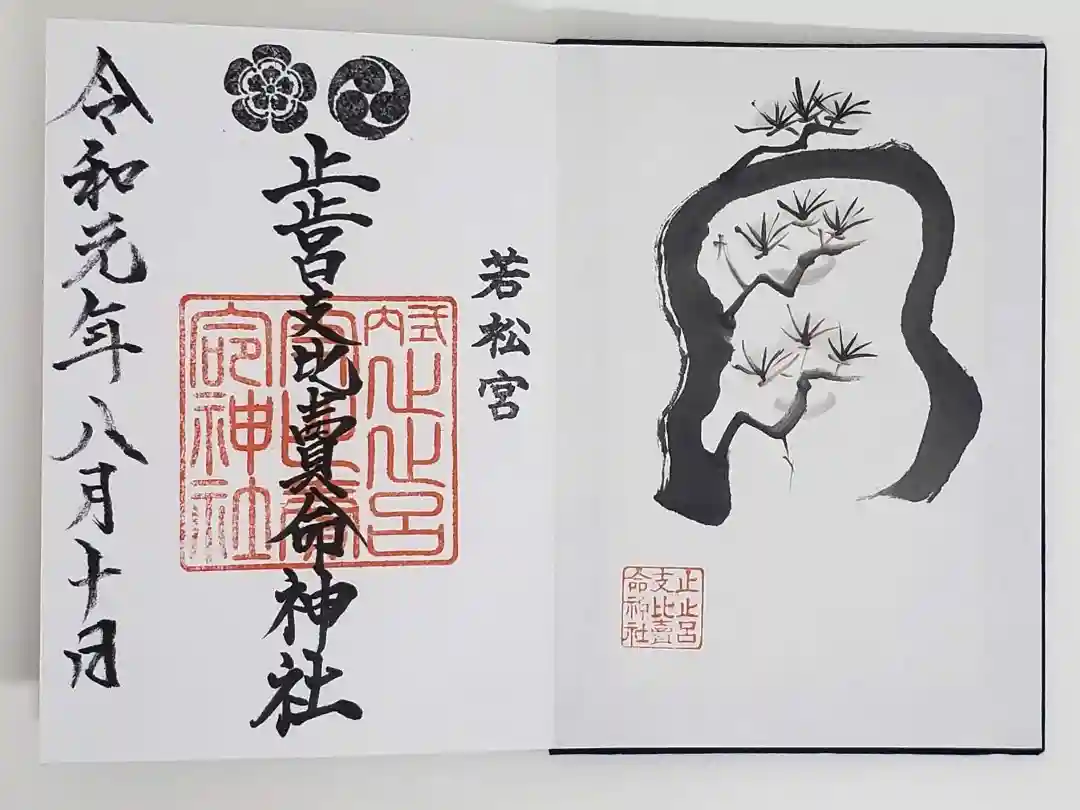 止止呂
支比賣
命神社
若松宮
止止呂支比賣命神社
式内
止止呂
命神社
令和元年八月十日